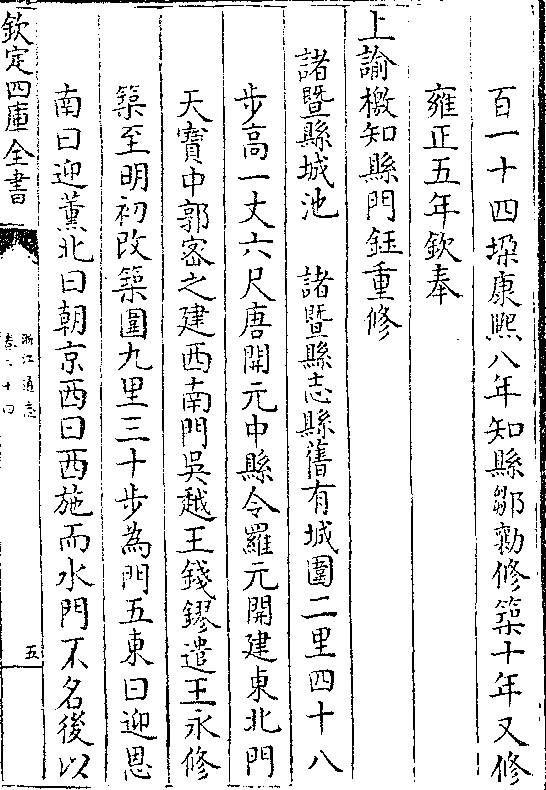 百一十四垜康熙八年知縣鄒勷修築十年又修
雍正五年欽奉
上諭檄知縣門鈺重修
諸暨縣城池 諸暨縣志縣舊有城圍二里四十八
步高一丈六尺唐開元中縣令羅元開建東北門
天寶中郭密之建西南門吳越王錢鏐遣王永修
築至明初改築圍九里三十步為門五東曰迎恩
南曰迎薰北曰朝京西曰西施而水門不名後以
欽定四庫全書
浙江通志
卷二十四
五